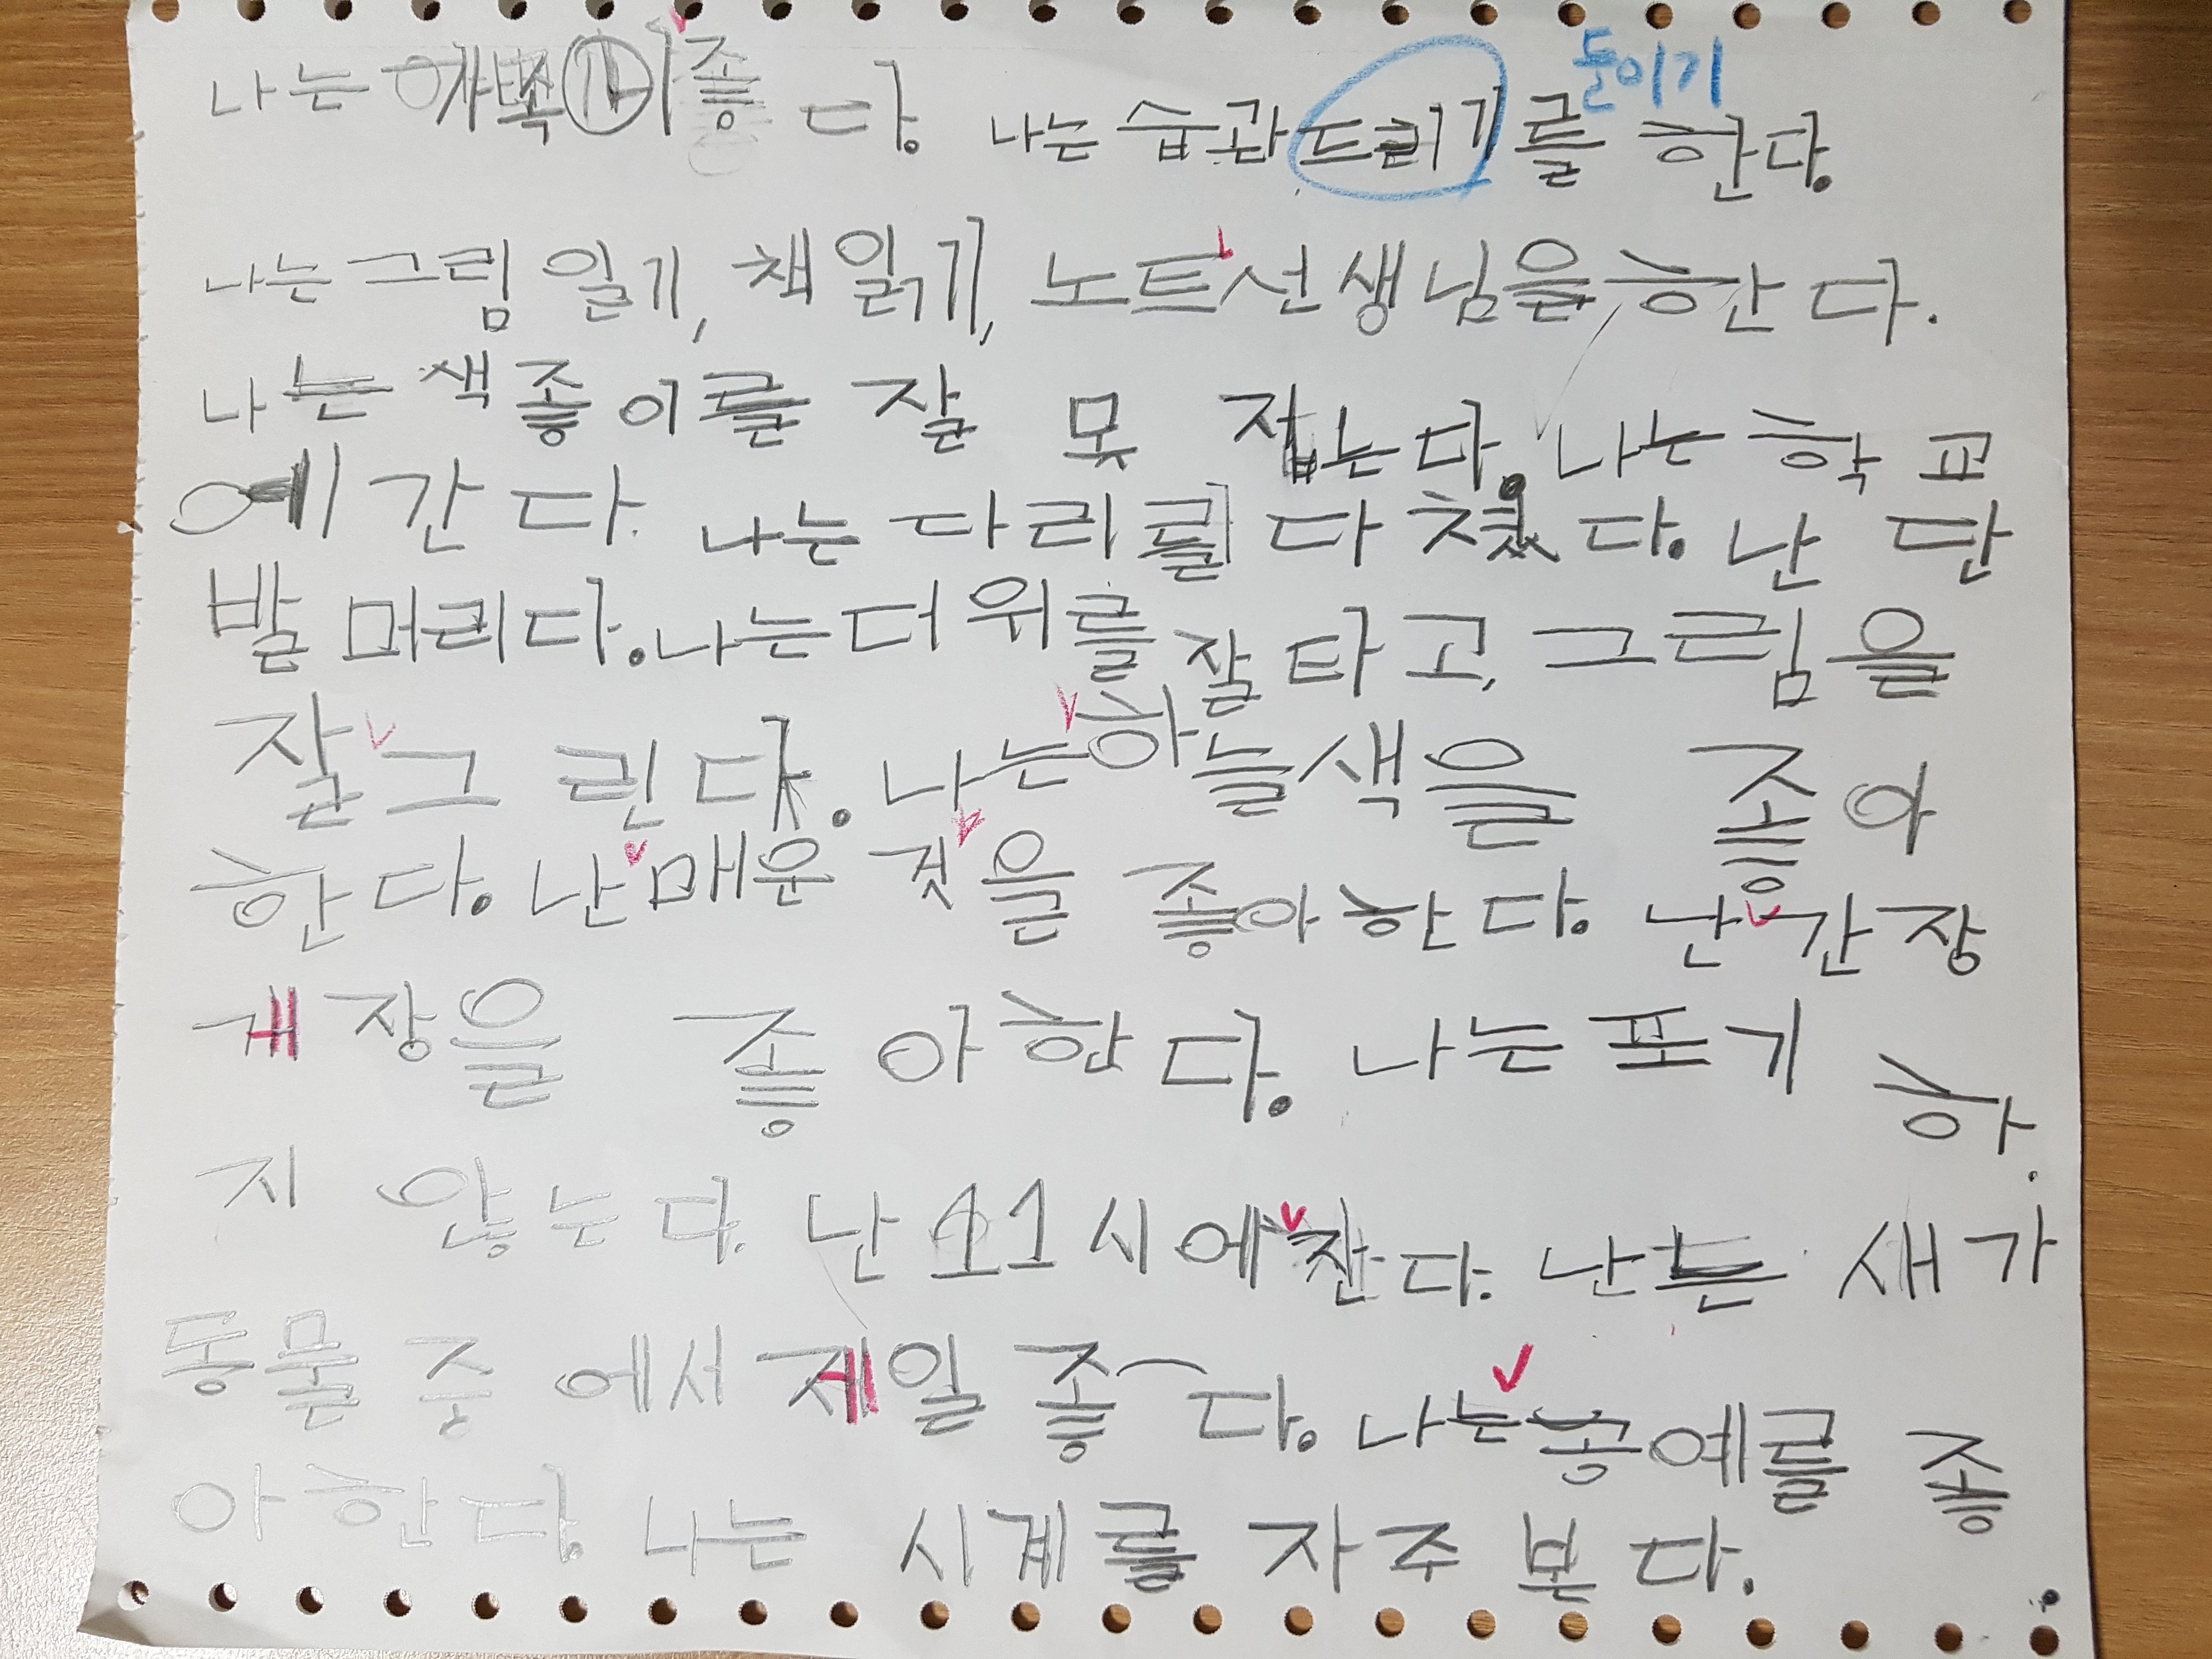 나는 가족이 좋다. 나는 습관드리기를 한다.
들이기
나는 그림 일기, 책 읽기, 노트선생님을 한다.
나는 색좋이를 잘 못 접는다. 나는 학교
에 간다. 나는 다리를 다쳤다. 난 단
발머리다. 나는 더위를 잘 타고, 그림을
잘그린다. 나는하늘색을 좋아
한다. 난매운 것을 좋아한다. 난간장
게장을 좋아한다. 나는 포기 하
지 않는다. 난 11시에잔다. 난 새가
동물 중에서 제일 좋다. 나는공예를 좋
아한다. 나는 시계를 자주 본다.